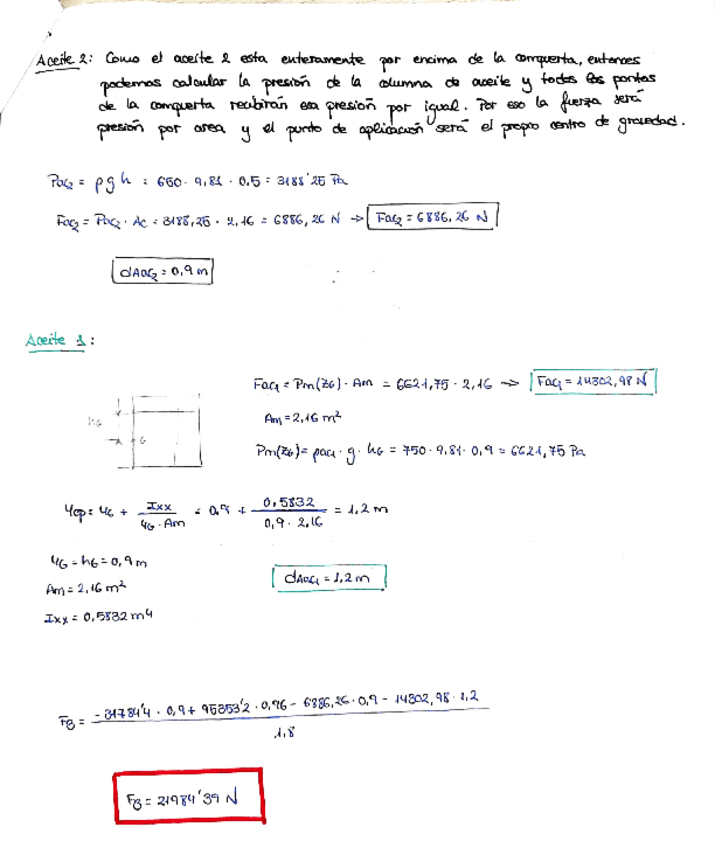 Aceite 2: Como el aceite 2 esta enteramente por encima de la compuerta, entonces
podemos calcular la presión de la columna de aceite y todos los puntos
de la compuerta recibirán esa presión por igual. Por eso la fuerza será
presión por area y el punto de aplicación será el propio centro de gravedad.
Pac₂ = ρgh = 650 · 9,81 · 0.5 = 3188'25 Pa
Fac₂ = Pac₂ · Ac = 3188,25 · 2,16 = 6886,26 N → Fac₂ = 6886,26 N
dAac₂ = 0,9 m
Aceite 1:
Fac₁ = Pm(ZG) · Am = 6621,75 · 2,16 → Fac₁ = 14302,98 N
Am = 2,16 m²
hG
G
Pm(ZG) = ρac₁ · g · hG = 750 · 9,81 · 0,9 = 6621,75 Pa
ycp = yG + Ixx / yG · Am = 0,9 + 0,5832 / 0,9 · 2,16 = 1,2 m
yG = hG = 0,9 m
dAac₁ = 1,2 m
Am = 2,16 m²
Ixx = 0,5832 m⁴
FB = -31784'4 · 0,9 + 95353'2 · 0,96 - 6886,26 · 0,9 - 14302,98 · 1,2 / 1,8
FB = 21984'39 N